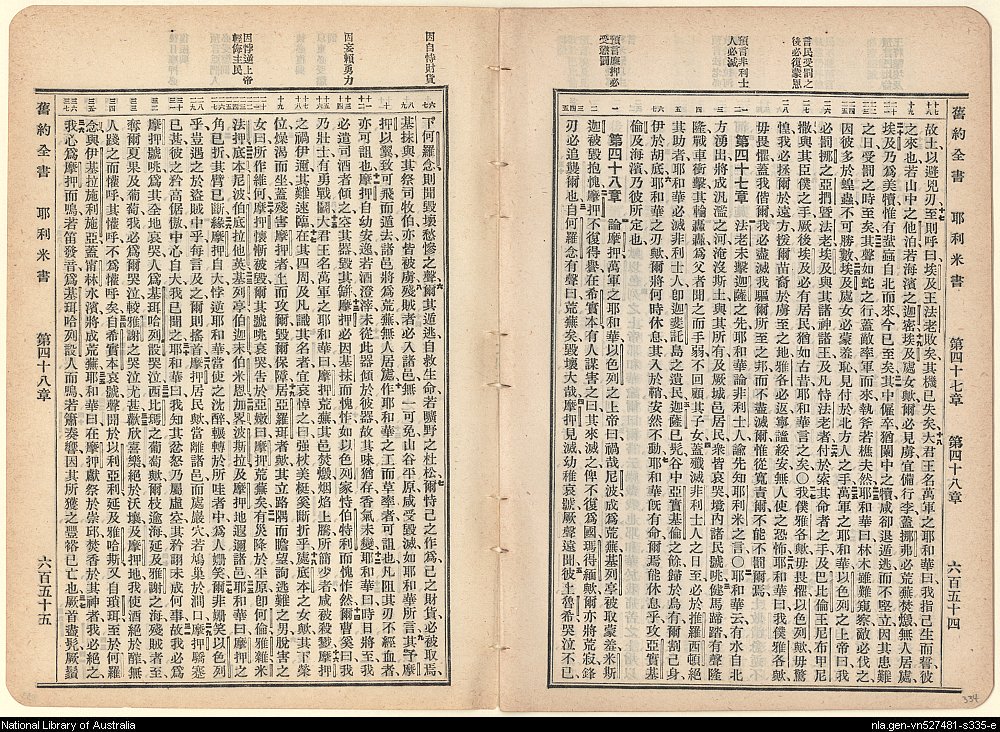 言民受罰之
後必復蒙恩
預言非利士
人必滅
預言摩押必
受懲罰
舊約全書 耶利米書 第四十七章 第四十八章 六百五十四
故土以避兇刃至則呼曰埃及王法老敗矣其機已失矣大君王名萬軍之耶和華曰我指己生而誓彼
之來也若山中之他泊若海濱之迦密埃及處女歟爾必見虜宜備行李蓋挪弗必荒蕪焚燬無人居處
埃及乃爲美犢惟有蜚蝱自北而來今已至矣其中僱卒猶闌中之犢咸卻退遁逃而不堅立因其患難
之日受罰之時至矣其聲如蛇之行蓋敵率軍而來執斧若樵夫然耶和華曰林木雖難窺察敵必伐之
因彼多於蝗蟲不可勝數埃及處女必蒙羞恥見付於北方人之手萬軍之耶和華以色列之上帝曰我
必罰挪之亞捫曁法老埃及與其諸神諸王及凡恃法老者付於索其命者之手及巴比倫王尼布甲尼
撒與其臣僕之手厥後埃及必有居民猶如古昔耶和華言之矣〇我僕雅各歟毋畏懼以色列歟毋驚
惶我必拯爾於遠方援爾苗裔於虜至之地雅各必返寧謐綏安無人使之恐怖耶和華曰我僕雅各歟
毋畏懼蓋我偕爾我必盡滅我驅爾所至之邦而不盡滅爾惟從寬責爾不能不罰爾焉
第四十七章 法老未擊迦薩之先耶和華論非利士人諭先知耶利米之言〇耶和華云有水自北
方湧出將成汎濫之河淹沒斯土與其所有及厥城邑居民衆皆哀哭境内諸民號咷健馬蹄踏有聲隆
隆戰車衝擊其輪轟轟爲父者聞之而手弱不回顧其子女蓋殲滅非利士人之日至必於推羅西頓絕
其助者耶和華必滅非利士人卽迦斐託島之遺民迦薩已髡谷中亞實基倫之餘歸於烏有爾割己身
伊于胡底耶和華之刃歟爾將何時休息其入於鞘安然不動耶和華既有命爾焉能休息乎攻亞實基
倫及海濱乃彼所定也
第四十八章 論摩押萬軍之耶和華以色列之上帝曰禍哉尼波成爲荒蕪基列亭被取蒙羞米斯
迦被毀抱愧摩押不復得譽在希實本有人謀害之曰其來滅之俾不復爲國瑪得緬歟爾亦將荒寂鋒
刃必追襲爾也自何羅念有聲曰荒蕪矣毀壞大哉摩押見滅幼稚哀號厥聲遠聞彼上魯希哭泣不已
因自恃財貨
因妄賴勇力
因悖逆上帝
輕侮主民
下何羅念則聞毀壞愁慘之聲爾其遁逃自救生命若曠野之杜松爾恃己之作爲己之財貨必被取焉
基抹與其祭司牧伯亦皆被虜殘賊者必入諸邑無一可免山谷平原咸受毀滅如耶和華所言其予摩
押以翼致可飛而遠去諸邑將爲荒蕪無人居處作耶和華之工而草率者可詛也凡阻其刃不經血者
亦可詛也摩押自幼安逸若酒澄滓未從此器傾於彼器故其味猶存香氣未變耶和華曰時日將至我
必遣司酒者傾之空其器毀其缾摩押必因基抹而愧怍如以色列家恃伯特利而愧怍然爾曹奚曰我
乃壯士有勇戰鬭歟大君王名萬軍之耶和華曰摩押荒蕪其邑焚燬烟焰上騰所簡少者咸被殺戮摩押
之禍伊邇其難速臨在其四周及凡識其名者宜哀悼之曰强杖美梃奚斯折乎處底本之女歟其下榮
位燥渴而坐蓋殘害摩押者上而攻爾毀爾保障居亞羅珥者歟其立路隅而瞻望詢逃難之男脫害之
女曰所作維何摩押懷慚被毀爾其號咷哀哭告於亞嫩曰摩押荒蕪矣有災降於平原卽何倫雅雜米
法押底本尼波伯底拉他英基列亭伯迦末伯米恩加畧波斯拉及摩押地遐邇諸邑耶和華曰摩押之
角已折其臂已斷緣摩押自大悖逆耶和華當使之沈醉輾轉於所哇者中爲人嗤笑爾非嗤笑以色列
乎豈遇之於盜賊中乎每言及之爾則搖首摩押居民歟當離諸邑而處巖穴若鳩巢於澗口摩押驕蹇
已甚彼之矜高倨傲中心自大我已聞之耶和華曰我知其忿怒乃屬虛空其矜詡未成何事故我必爲
摩押號咷爲其全地哀哭人爲基珥哈列設哭泣西比瑪之葡萄歟爾枝逾海延及雅謝之海殘賊者至
奪爾夏果及葡萄我必爲爾哭泣較雅謝之哭泣尤甚歡欣喜樂絕於沃壤及摩押地我使酒醡無酒無
人踐之而懽呼其懽呼不爲懽呼矣自希實本哀號聲聞於以利亞利延及雅哈斯又自瑣珥至於何羅
念與伊基拉施利施亞蓋甯林水濱將成荒蕪耶和華曰在摩押獻祭於崇邱焚香於其神者我必絕之
我心爲摩押而鳴若笛發音爲基珥哈列設人而鳴若簫奏響因其所獲之豐裕已亡也厥首盡髡厥鬚
舊約全書 耶利米書 第四十八章 六百五十五
334
National Library of Australia
nla.gen-vn527481-s335-e